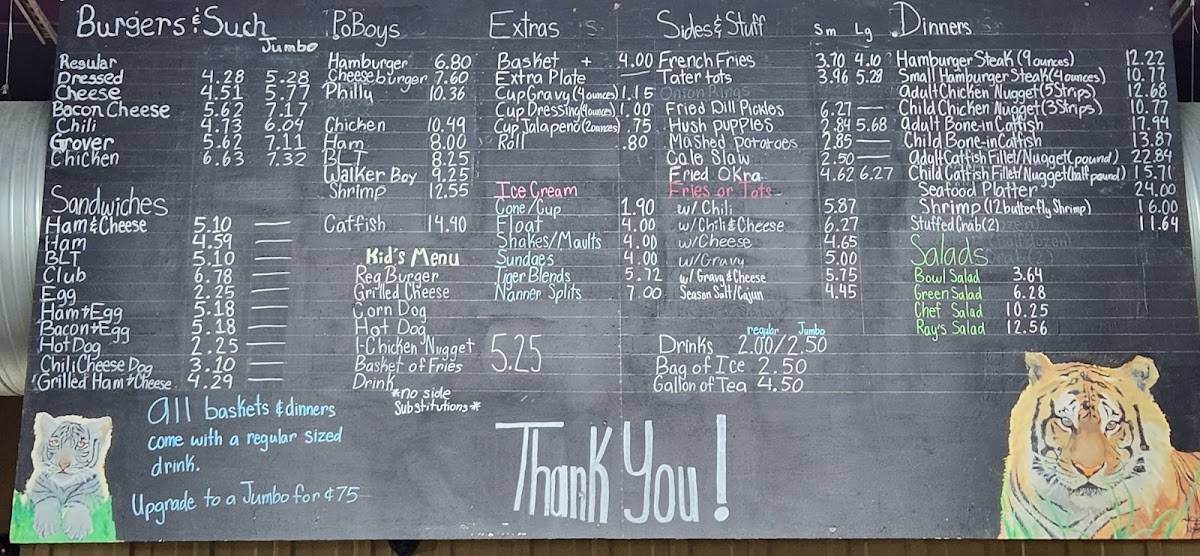 Burgers & Such
Jumbo
Regular
Dressed 4.28 5.28
Cheese 4.51 5.77
Bacon Cheese 5.62 7.17
Chili 4.73 6.04
Grover 5.62 7.11
Chicken 6.63 7.32
Sandwiches
Ham & Cheese 5.10 —
Ham 4.59 —
BLT 5.10 —
Club 6.78 —
Egg 2.25 —
Ham + Egg 5.18 —
Bacon + Egg 5.18 —
Hot Dog 2.25 —
Chili Cheese Dog 3.10 —
Grilled Ham & Cheese 4.29 —
all baskets & dinners
come with a regular sized
drink.
Upgrade to a Jumbo for ¢75
PoBoys
Hamburger 6.80
Cheeseburger 7.60
Philly 10.36
Chicken 10.49
Ham 8.00
BLT 8.25
Walker Boy 9.25
Shrimp 12.55
Catfish 14.40
Kid's Menu
Reg Burger
Grilled Cheese
Corn Dog
Hot Dog
1-Chicken Nugget
Basket of Fries
Drink
5.25
*no side
Substitutions*
Extras
Basket + 4.00
Extra Plate —
Cup Gravy (4 ounces) 1.15
Cup Dressing (4 ounces) 1.00
Cup Jalapeño (2 ounces) .75
Roll .80
Ice Cream
Cone/Cup 1.90
Float 4.00
Shakes/Maults 4.00
Sundaes 4.00
Tiger Blends 5.72
Nanner Splits 7.00
Sides & Stuff Sm Lg
French Fries 3.70 4.10
Tater tots 3.96 5.28
Onion Rings
Fried Dill Pickles 6.27 —
Hush puppies 2.84 5.68
Mashed Potatoes 2.85 —
Cole Slaw 2.50 —
Fried Okra 4.62 6.27
Fries or Tots
w/ Chili 5.87
w/ Chili & Cheese 6.27
w/ Cheese 4.65
w/ Gravy 5.00
w/ Gravy & Cheese 5.75
Season Salt/Cajun 4.45
regular Jumbo
Drinks 2.00/2.50
Bag of Ice 2.50
Gallon of Tea 4.50
Dinners
Hamburger Steak (9 ounces) 12.22
Small Hamburger Steak (4 ounces) 10.77
Adult Chicken Nugget (5 Strips) 12.68
Child Chicken Nugget (3 Strips) 10.77
Adult Bone-in Catfish 17.94
Child Bone-in Catfish 13.87
Adult Catfish Fillet/Nugget (pound) 22.84
Child Catfish Fillet/Nugget (half pound) 15.71
Seafood Platter 24.00
Shrimp (12 butterfly Shrimp) 16.00
Stuffed Crab (2) 11.64
Salads
Bowl Salad 3.64
Green Salad 6.28
Chef Salad 10.25
Ray's Salad 12.56
Thank You!